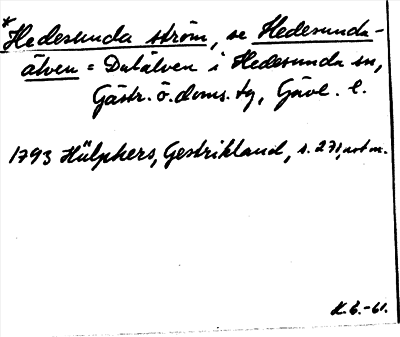 * Hedesunda ström, se Hedesunda-
älven = Dalälven i Hedesunda sn,
Gästr. ö. doms. tg, Gävl. l.
1793 Hülphers, Gestrikland, s. 271, not m.
K.E.-61.